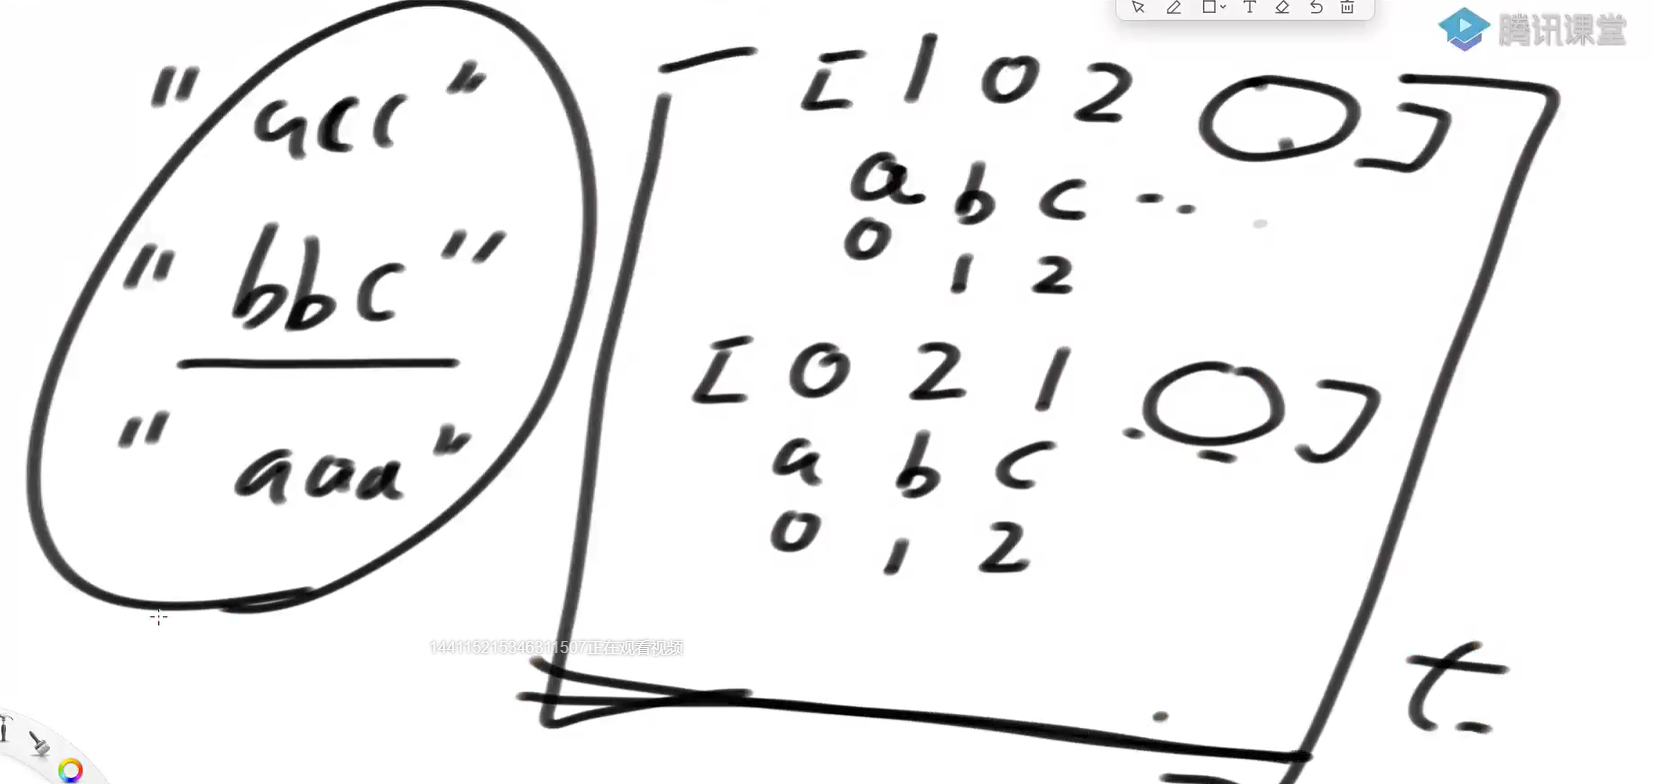 腾讯课堂
"acc"
"bbc"
"aaa"
[102 ]
abc..
012
[021 ]
abc
012
144115215346311507正在观看视频
t